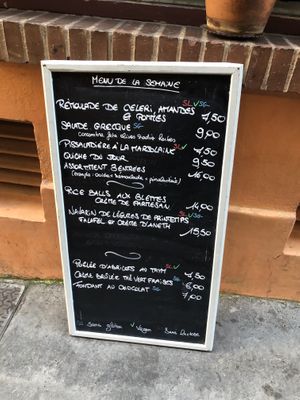 MENU DE LA SEMAINE
SL ✓ SG
RÉMOULADE DE CÉLERI, AMANDES
ET POMMES 7,50
SALADE GRECQUE SG 9,00
PISSALADIÈRE À LA MARJOLAINE SL ✓ 7,50
QUICHE DU JOUR 9,50
ASSORTIMENT 3 ENTRÉES 16,00
RICE BALLS AUX BLETTES
CRÈME DE PARMESAN 14,00
NAVARIN DE LÉGUMES DE PRINTEMPS
SL ✓ SG
FALAFEL ET CRÈME D'ANETH 15,50
POÊLÉE D'ABRICOTS AU THYM SL ✓ 7,50
CRÈME BRÛLÉE THÉ VERT FRAISES SG 6,00
FONDANT AU CHOCOLAT SG 7,00
Sans gluten ✓ Vegan Sans Lactose